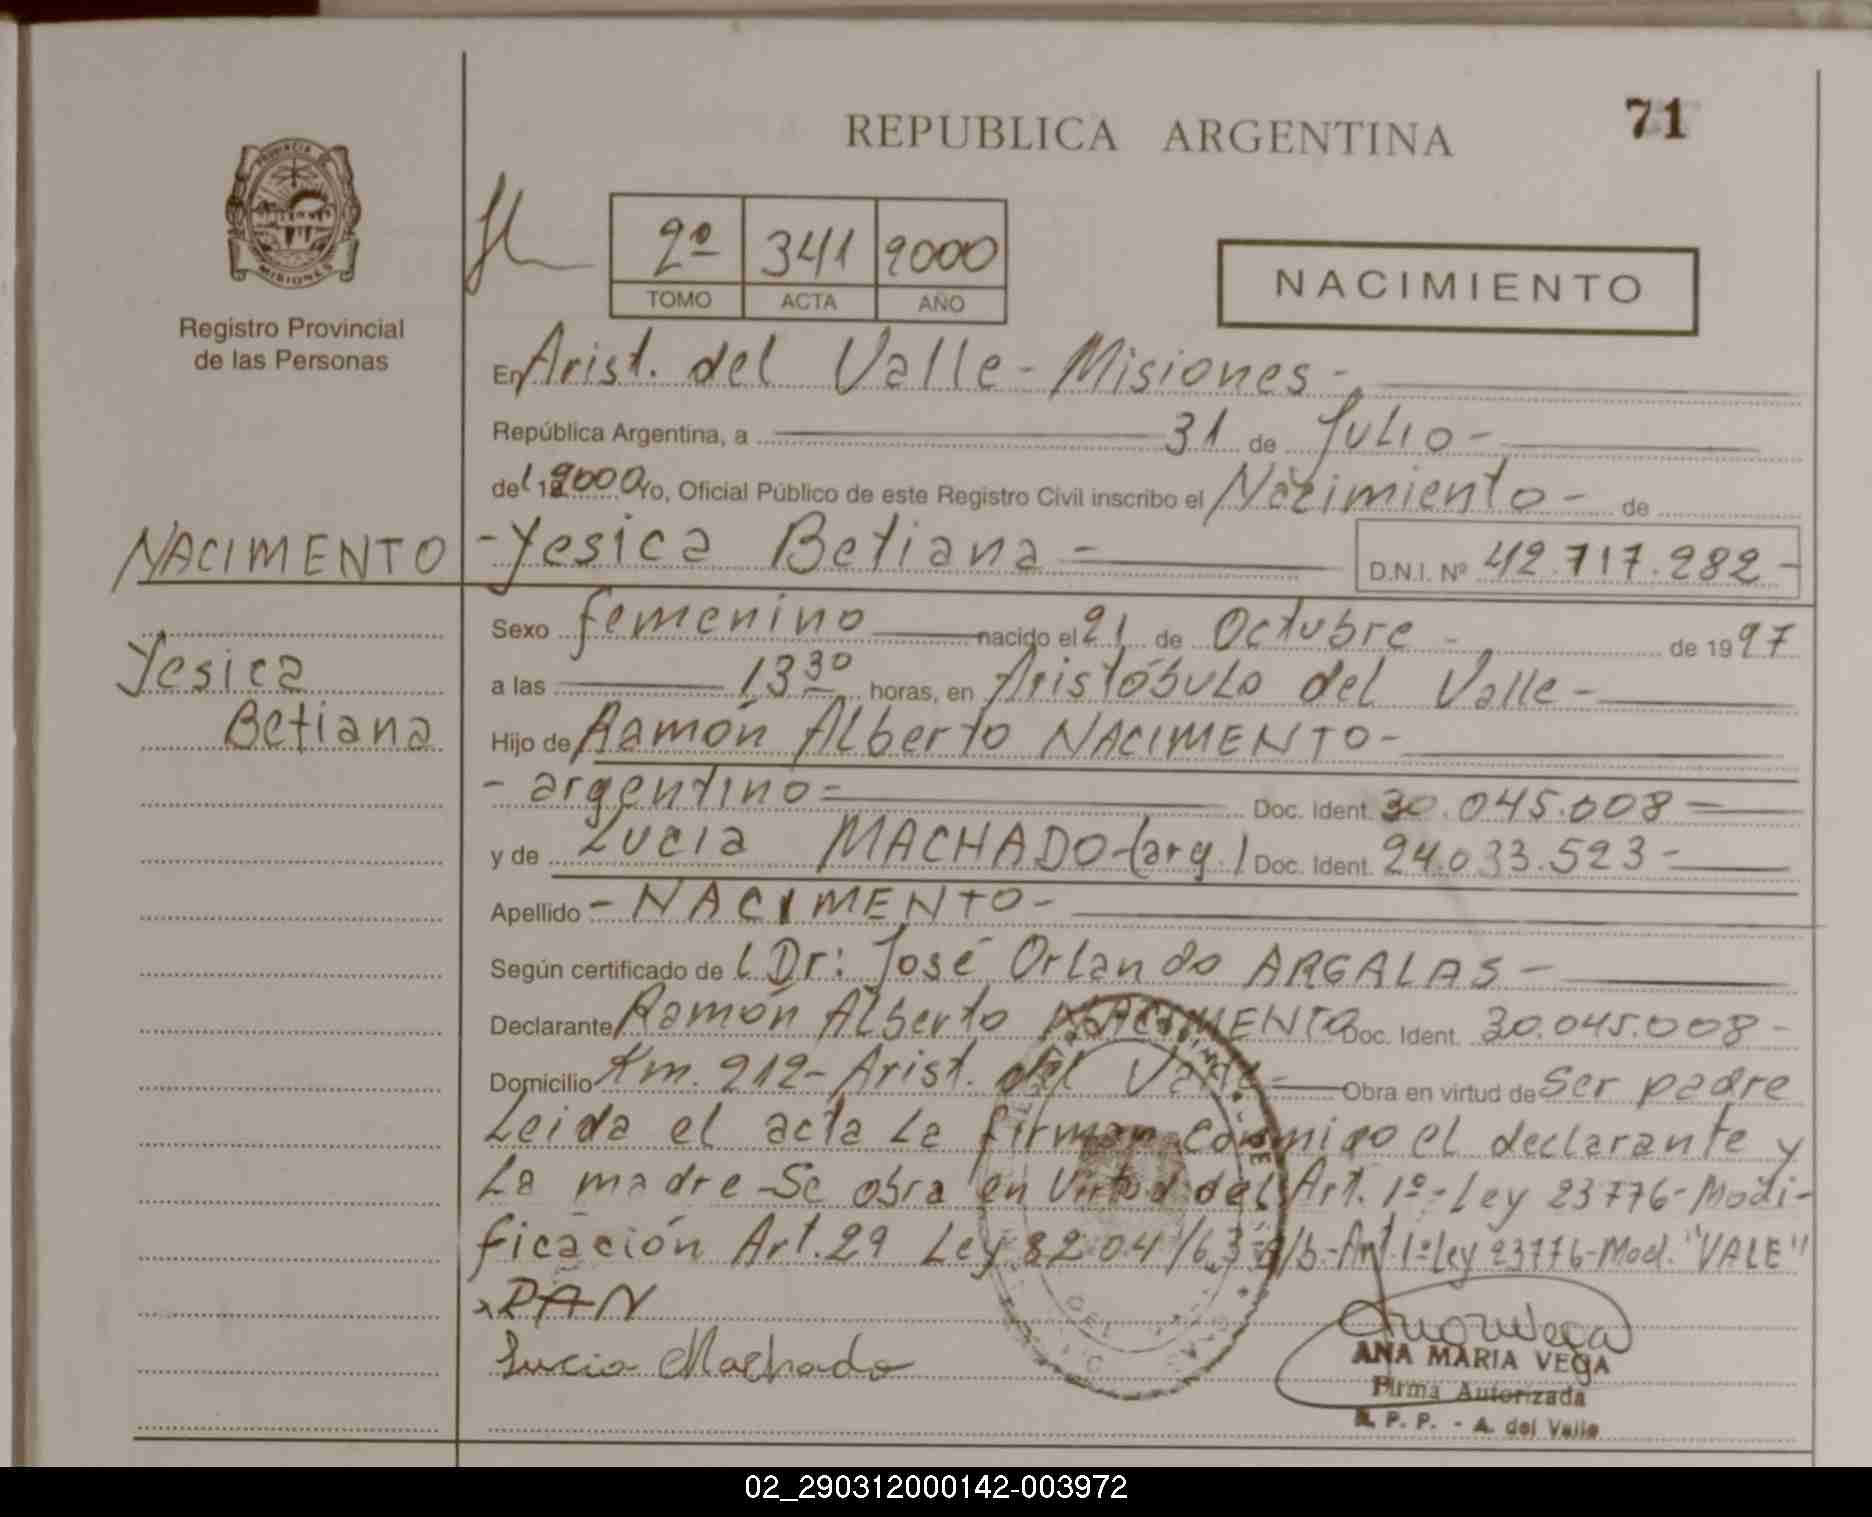 REPUBLICA ARGENTINA
71
PROVINCIA DE
MISIONES
Registro Provincial
de las Personas
2º 341 2000
TOMO ACTA AÑO
NACIMIENTO
En Arist. del Valle - Misiones -
República Argentina, a 31 de Julio -
del 2000 Yo, Oficial Público de este Registro Civil inscribo el Nacimiento - de
NACIMENTO
- Yesica Betiana - D.N.I. Nº 42.717.282 -
Yesica
Betiana
Sexo femenino nacido el 21 de Octubre - de 1997
a las 13 30 horas, en Aristóbulo del Valle -
Hijo de Ramón Alberto NACIMENTO -
- argentino - Doc. Ident. 30.045.008 -
y de Lucia MACHADO - (arg.) Doc. Ident. 24.033.523 -
Apellido - NACIMENTO -
Según certificado del Dr: José Orlando ARGALAS -
Declarante Ramón Alberto NACIMENTO Doc. Ident. 30.045.008 -
Domicilio Km. 212 - Arist. del Valle - Obra en virtud de Ser padre
Leida el acta la firman conmigo el declarante y
la madre - Se obra en Virtud del Art. 1º - Ley 23776 - Modi-
ficación Art. 29 Ley 8204/63 - e/b. - Art. 1º Ley 23776 - Mod. "VALE"
RAN
Lucia Machado
ANA MARIA VEGA
Firma Autorizada
R. P. P. - A. del Valle
02_290312000142-003972